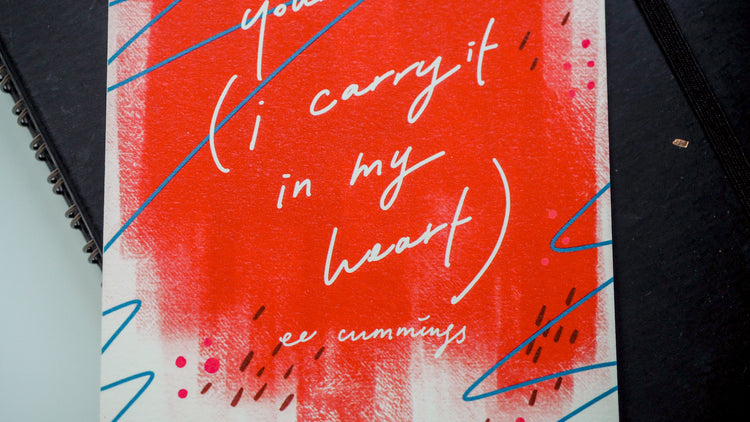 (i carry it
in my
heart)
ee cummings